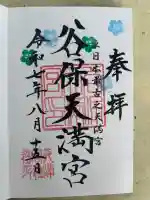 奉拝
日本最古之天満宮
谷保天満宮
令和七年八月十五日